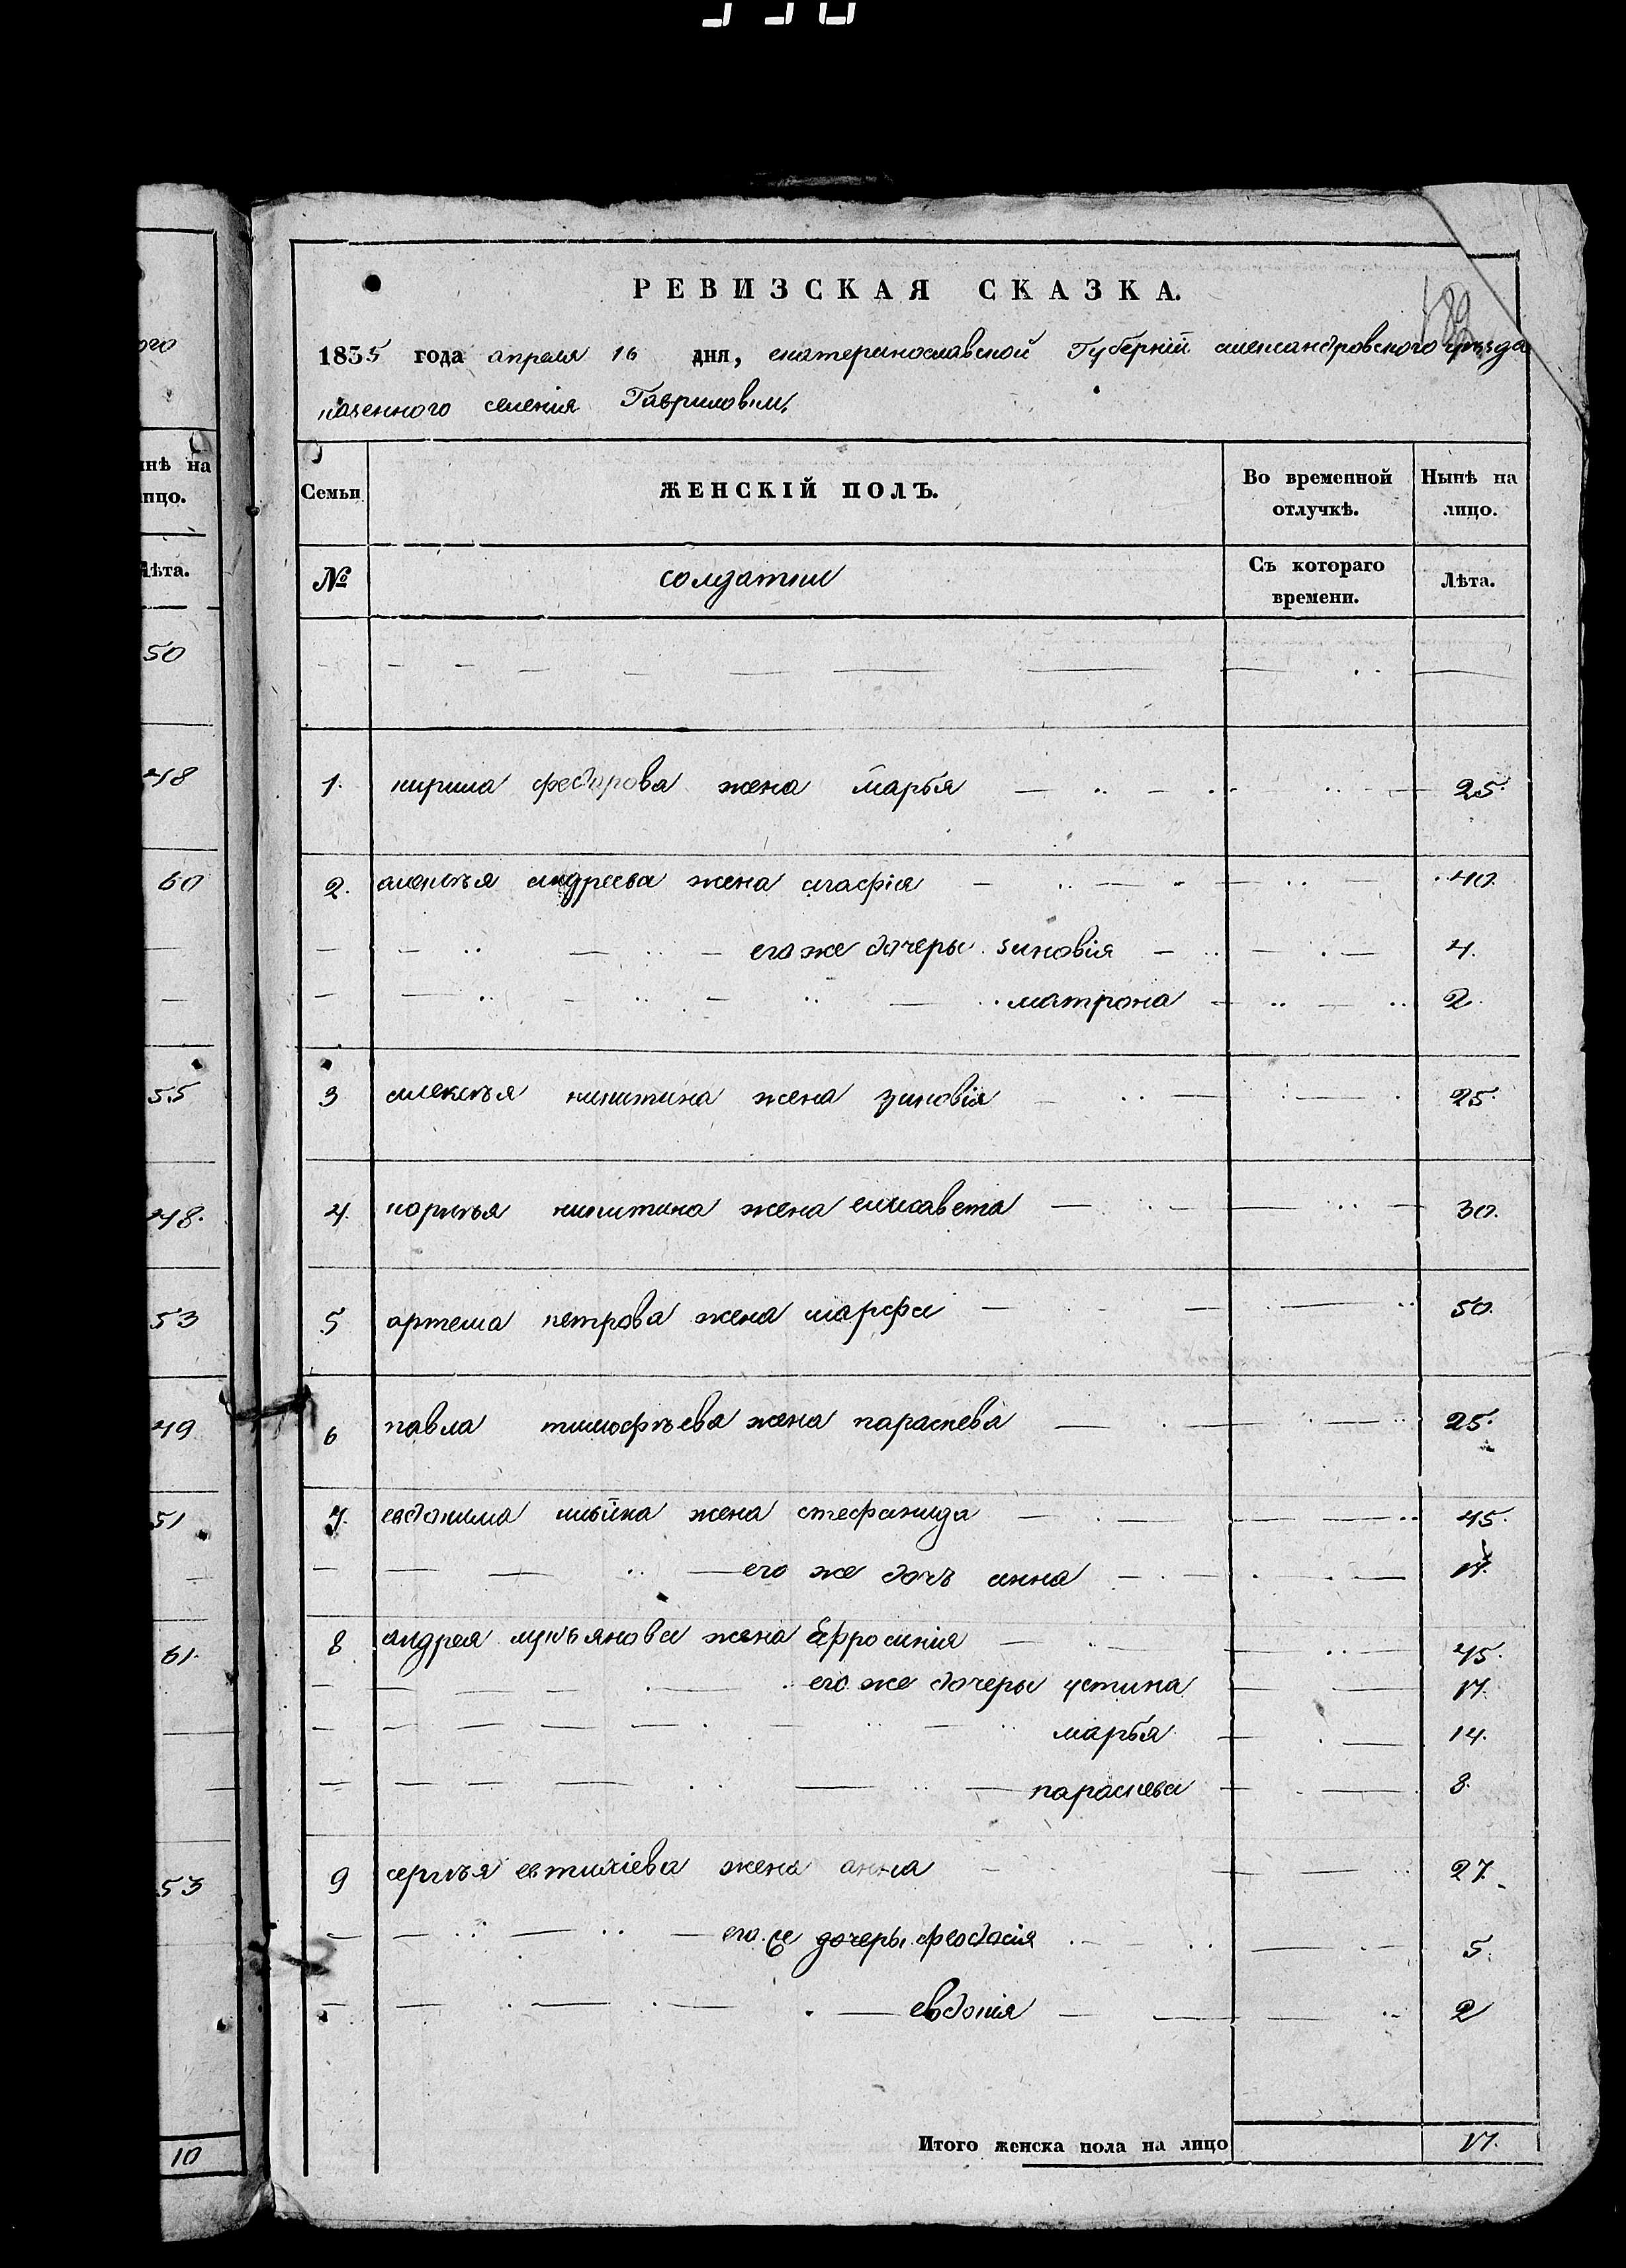 ого
ннѣ на
лицо.
Лѣта.
50
48
60
55
48.
53
49
51
61.
53
10
РЕВИЗСКАЯ СКАЗКА.
1835 года апреля 16 дня, екатеринославской Губерній александровского уѣзда
казенного селенія Гавриловки
Семьи
ЖЕНСКІЙ ПОЛЪ.
Во временной отлучкѣ.
Нынѣ на лицо.
№
солдатки
Съ котораго времени.
Лѣта.
1. кирила федорова жена марья 25.
2. алексѣя андреева жена агафія 40.
его же дочеры зиновія 4.
матрона 2.
3 алексѣя никитина жена зиновія 25.
4. корнѣя никитина жена елисавета 30.
5 артема петрова жена марфа 50.
6 павла тимофѣева жена параскева 25.
7. евдокима ильина жена стефанида 45.
его же дочъ анна 17.
8 андрея лукьянова жена Ефросинія 45.
его же дочеры устина 17.
марья 14.
параскева 8.
9 сергѣя евтихіева жена анна 27.
его же дочеры феодосія 5.
евдокія 2
Итого женска пола на лицо 17.